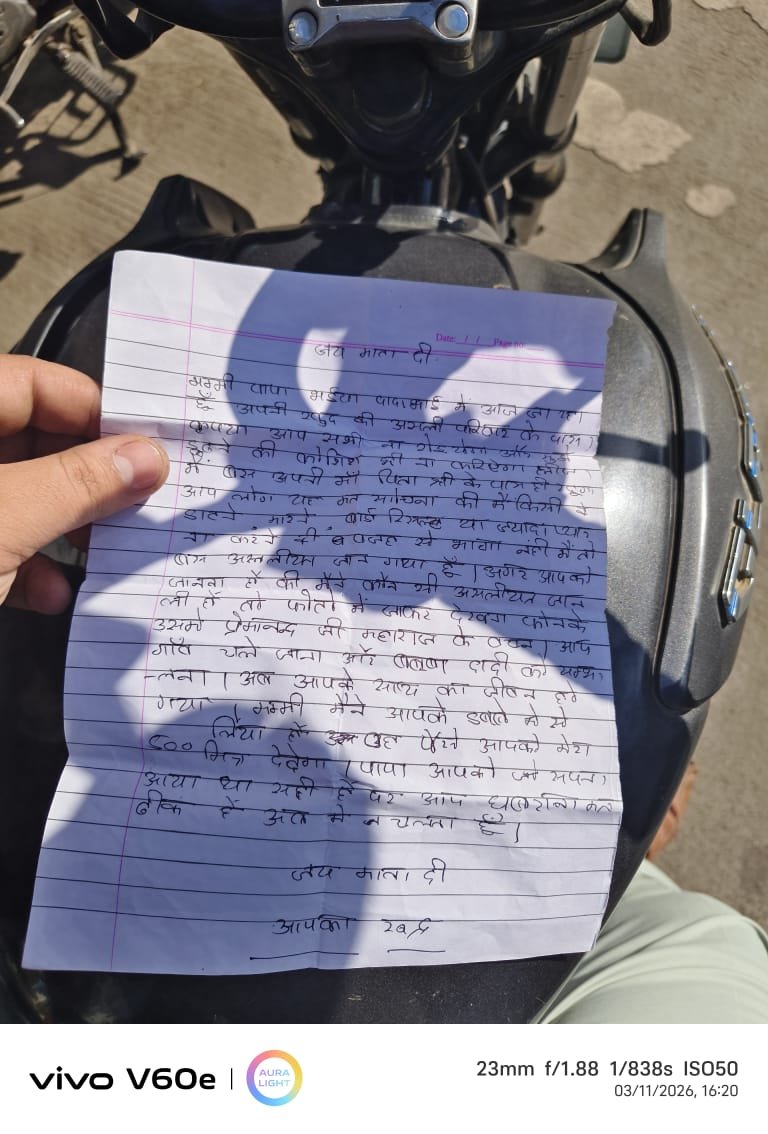 Date: / / Page no:
जय माता दी
मम्मी पापा भईया दादा भाई में आज जा रहा
हूँ अपनी खुद की असली परिवार के पास।
कृपया आप सभी ना और मुझे
ढुंढने की कोशिश भी ना करिएगा
में बस अपनी माँ पिता श्री के पास ही
आप लोग यह मत सोचना की मैं किसी के
डाटने मारने बोर्ड रिजल्ट या ज्यादा प्यार
ना करने की वजह से भागा नहीं मैं तो
बस असलीयत जान गया हूँ। अगर आपको
जानना हैं की मैने कौन सी असलीयत जान
ली हैं तो फोटो में जाकर देखना फोनके
उसमे प्रेमानन्द जी महाराज के वचन। आप
गाँव चले जाना और दादी को सम्भा
-लना। अब आपके साथ का जीवन हो
गया। मम्मी मैने आपके डब्बे में से
500 लिया हैं वह पैसे आपको मेरा
मित्र देदेगा। पापा आपको जो सपना
आया था सही हैं पर आप घबराना मत
ठीक हैं अब में चलता हूँ।
जय माता दी
आपका
vivo V60e
AURA LIGHT
23mm f/1.88 1/838s ISO50
03/11/2026, 16:20